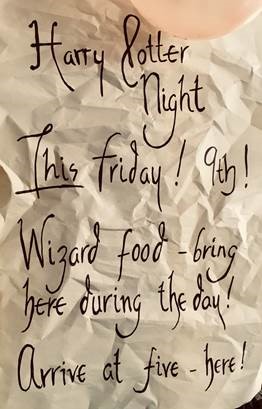 Harry Potter
Night
This friday! 9th!
Wizard food - bring
here during the day!
Arrive at five - here!